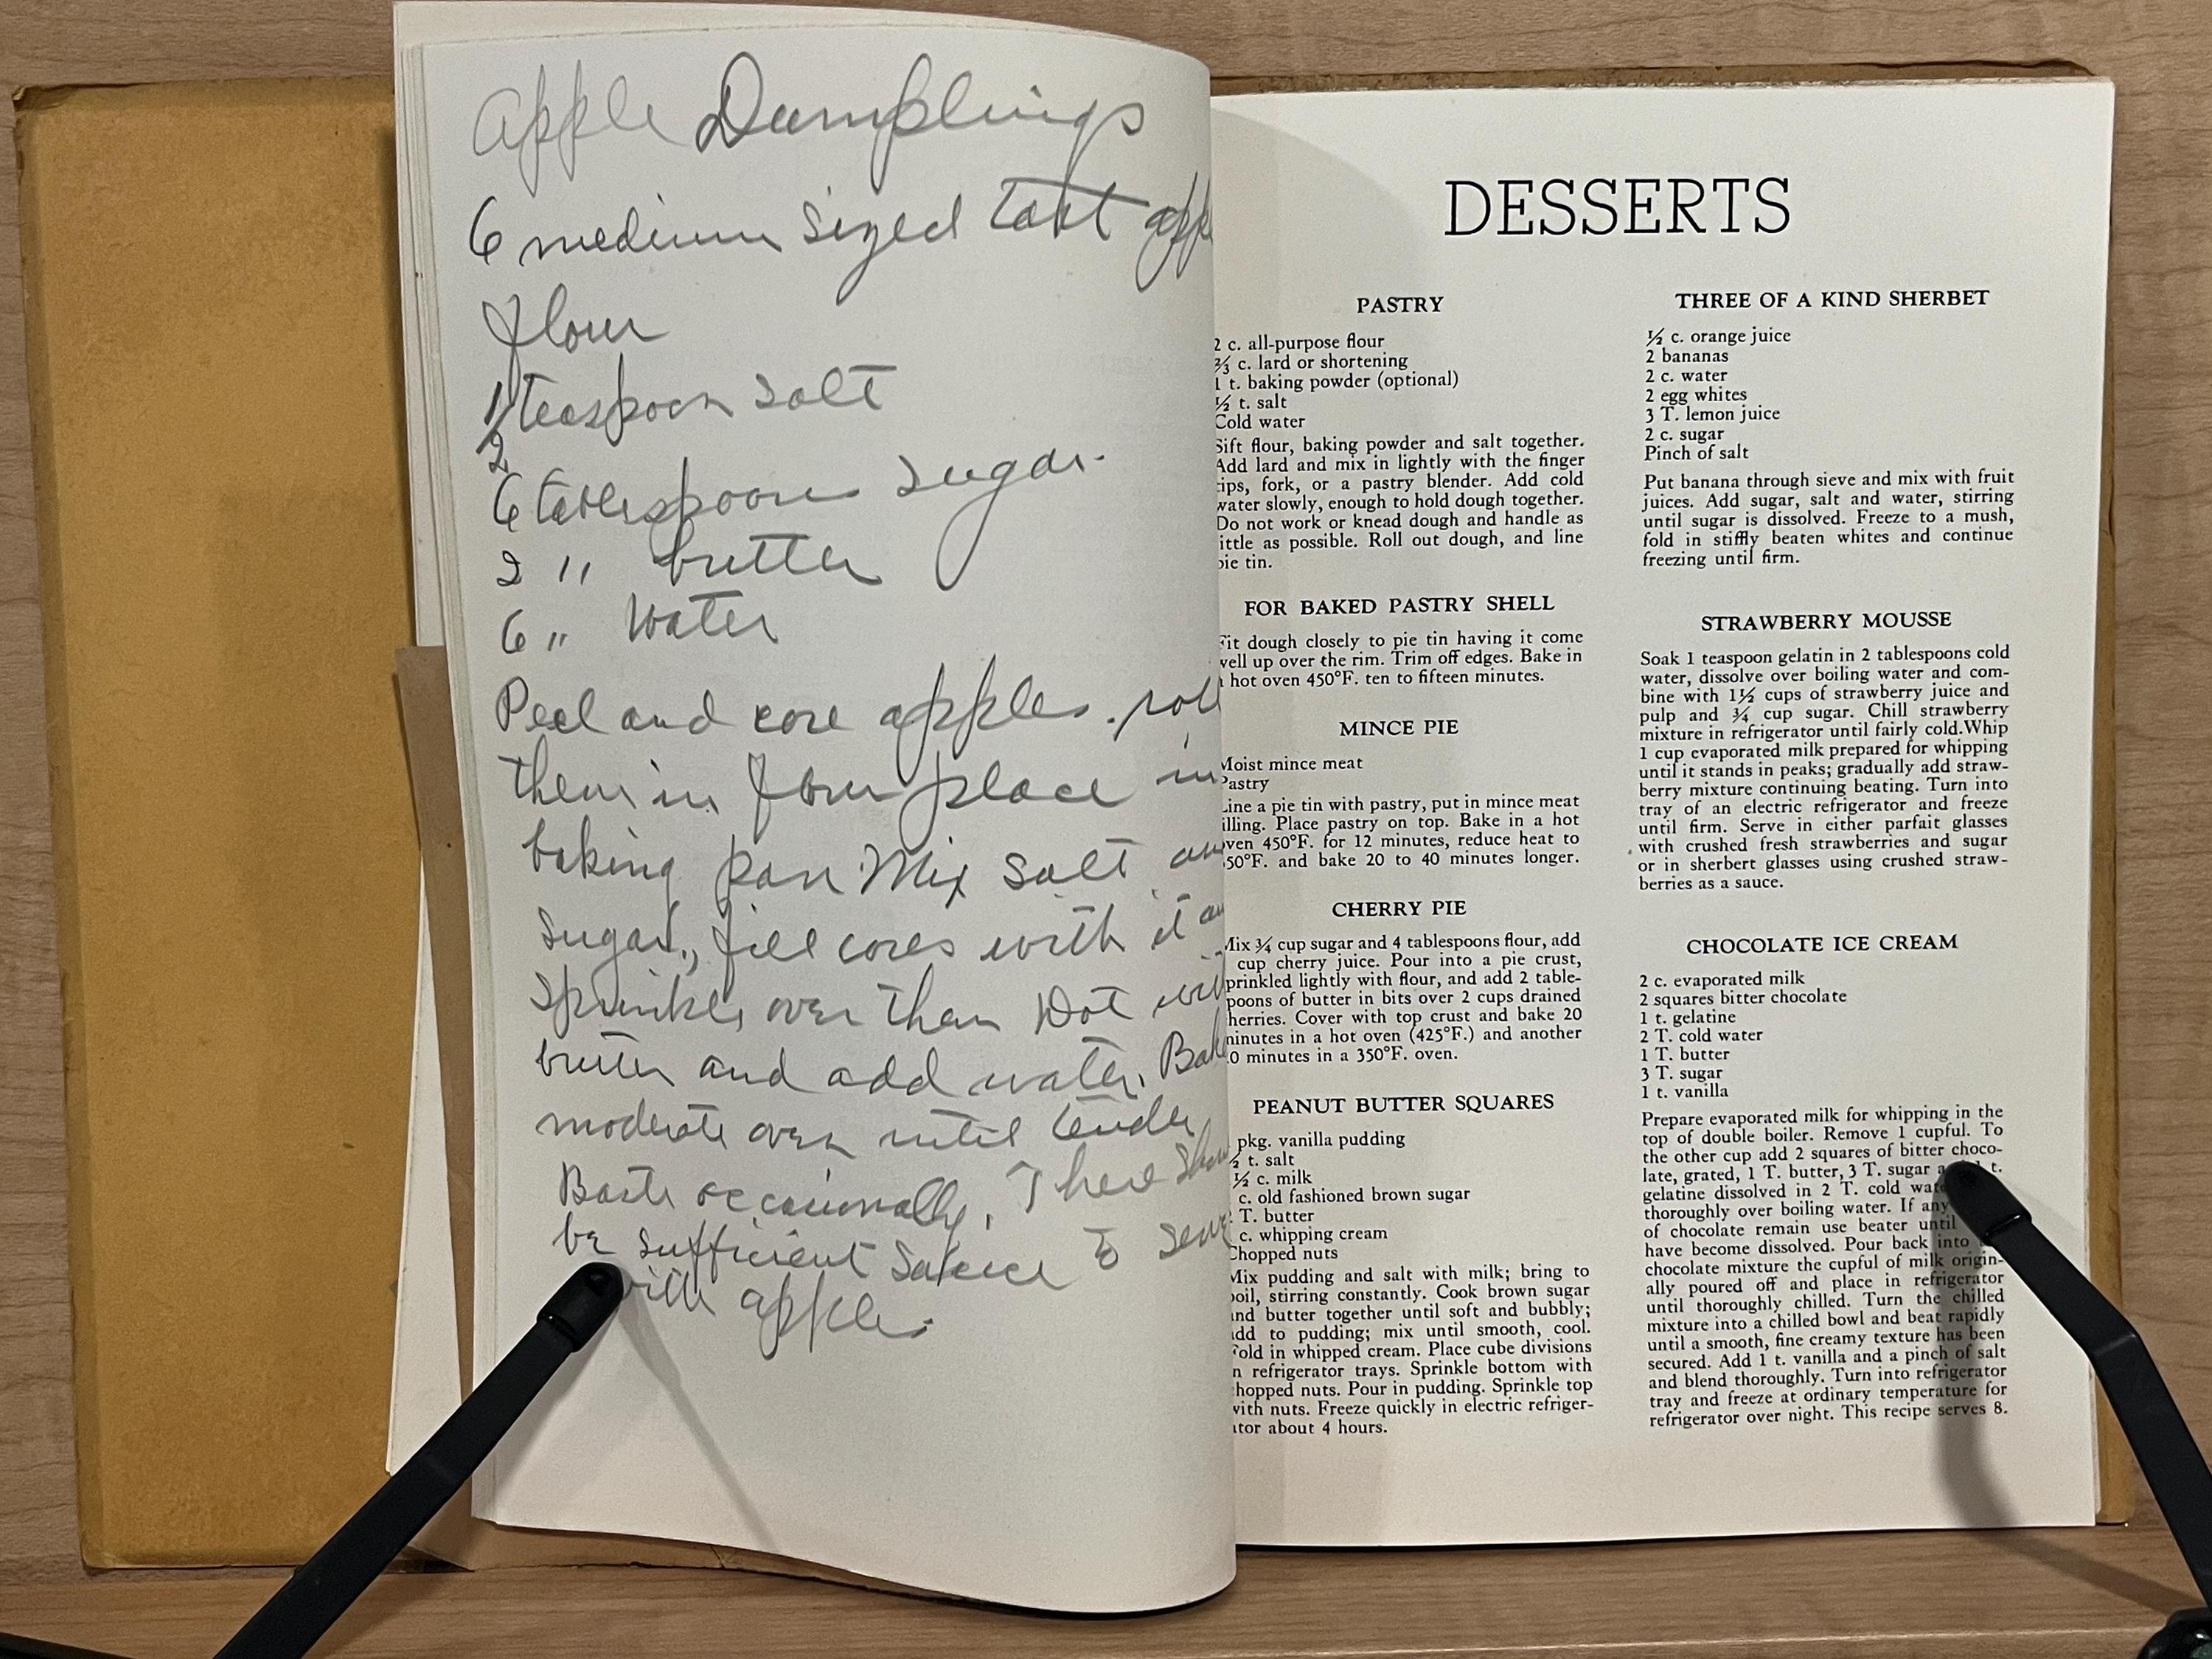 Apple Dumplings
6 medium sized tart app
flour
1/2 teaspoon salt
6 tablespoons sugar.
2 " butter
6 " water
Peel and core apples. roll
them in flour place in
baking pan. Mix salt an
sugar, fill cores with it an
sprinkle over them Dot wit
butter and add water. Bak
moderate oven until tender
Baste occasionally. There shou
be sufficient sauce to serve
with apples.
DESSERTS
PASTRY
2 c. all-purpose flour
⅔ c. lard or shortening
1 t. baking powder (optional)
½ t. salt
Cold water
Sift flour, baking powder and salt together.
Add lard and mix in lightly with the finger
tips, fork, or a pastry blender. Add cold
water slowly, enough to hold dough together.
Do not work or knead dough and handle as
little as possible. Roll out dough, and line
pie tin.
FOR BAKED PASTRY SHELL
Fit dough closely to pie tin having it come
well up over the rim. Trim off edges. Bake in
hot oven 450°F. ten to fifteen minutes.
MINCE PIE
Moist mince meat
Pastry
Line a pie tin with pastry, put in mince meat
illing. Place pastry on top. Bake in a hot
oven 450°F. for 12 minutes, reduce heat to
50°F. and bake 20 to 40 minutes longer.
CHERRY PIE
Mix ¾ cup sugar and 4 tablespoons flour, add
cup cherry juice. Pour into a pie crust,
prinkled lightly with flour, and add 2 table-
poons of butter in bits over 2 cups drained
herries. Cover with top crust and bake 20
minutes in a hot oven (425°F.) and another
0 minutes in a 350°F. oven.
PEANUT BUTTER SQUARES
pkg. vanilla pudding
½ t. salt
½ c. milk
c. old fashioned brown sugar
T. butter
c. whipping cream
Chopped nuts
Mix pudding and salt with milk; bring to
boil, stirring constantly. Cook brown sugar
and butter together until soft and bubbly;
add to pudding; mix until smooth, cool.
Fold in whipped cream. Place cube divisions
n refrigerator trays. Sprinkle bottom with
hopped nuts. Pour in pudding. Sprinkle top
with nuts. Freeze quickly in electric refriger-
ator about 4 hours.
THREE OF A KIND SHERBET
½ c. orange juice
2 bananas
2 c. water
2 egg whites
3 T. lemon juice
2 c. sugar
Pinch of salt
Put banana through sieve and mix with fruit
juices. Add sugar, salt and water, stirring
until sugar is dissolved. Freeze to a mush,
fold in stiffly beaten whites and continue
freezing until firm.
STRAWBERRY MOUSSE
Soak 1 teaspoon gelatin in 2 tablespoons cold
water, dissolve over boiling water and com-
bine with 1½ cups of strawberry juice and
pulp and ¾ cup sugar. Chill strawberry
mixture in refrigerator until fairly cold.Whip
1 cup evaporated milk prepared for whipping
until it stands in peaks; gradually add straw-
berry mixture continuing beating. Turn into
tray of an electric refrigerator and freeze
until firm. Serve in either parfait glasses
with crushed fresh strawberries and sugar
or in sherbert glasses using crushed straw-
berries as a sauce.
CHOCOLATE ICE CREAM
2 c. evaporated milk
2 squares bitter chocolate
1 t. gelatine
2 T. cold water
1 T. butter
3 T. sugar
1 t. vanilla
Prepare evaporated milk for whipping in the
top of double boiler. Remove 1 cupful. To
the other cup add 2 squares of bitter choco-
late, grated, 1 T. butter, 3 T. sugar a t.
gelatine dissolved in 2 T. cold wat
thoroughly over boiling water. If any
of chocolate remain use beater until
have become dissolved. Pour back into
chocolate mixture the cupful of milk origin-
ally poured off and place in refrigerator
until thoroughly chilled. Turn the chilled
mixture into a chilled bowl and beat rapidly
until a smooth, fine creamy texture has been
secured. Add 1 t. vanilla and a pinch of salt
and blend thoroughly. Turn into refrigerator
tray and freeze at ordinary temperature for
refrigerator over night. This recipe serves 8.